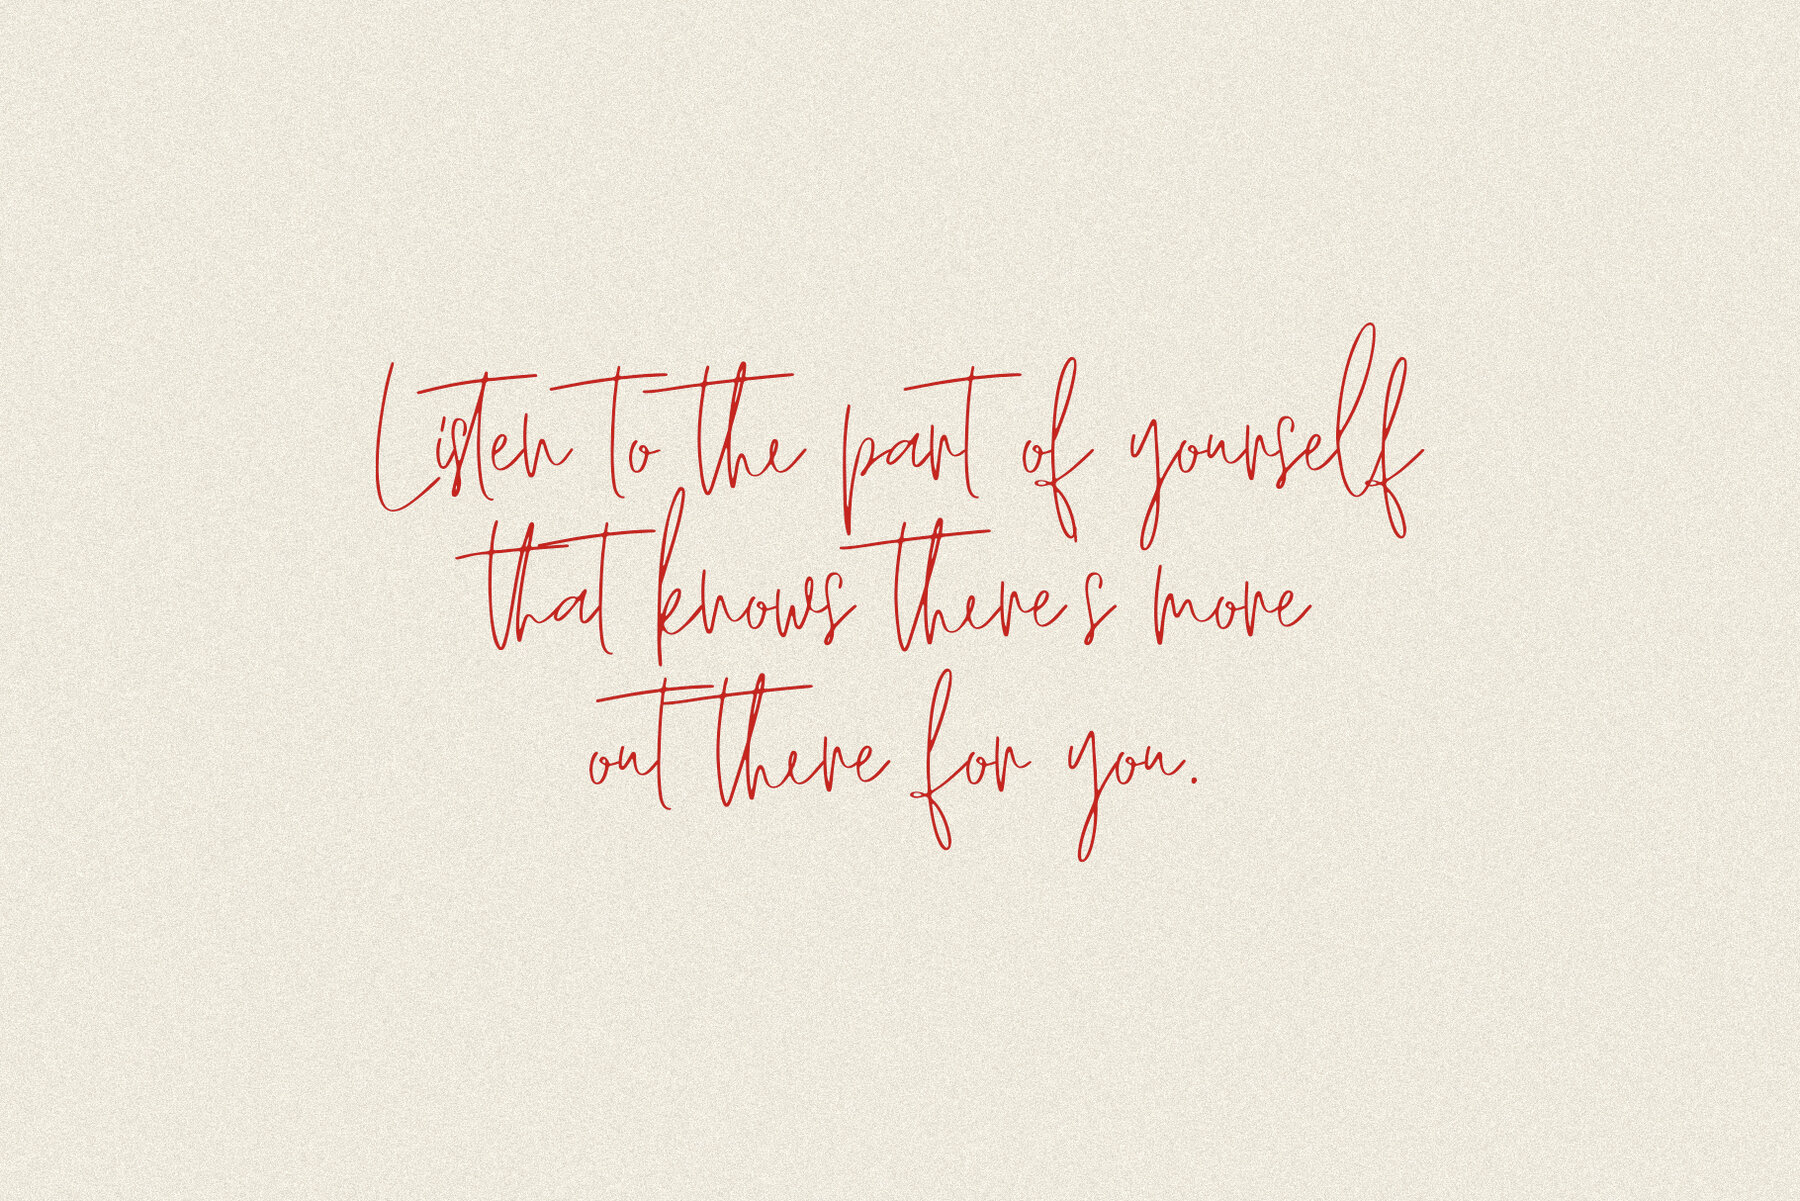 Listen to the part of yourself
that knows there s more
out there for you.